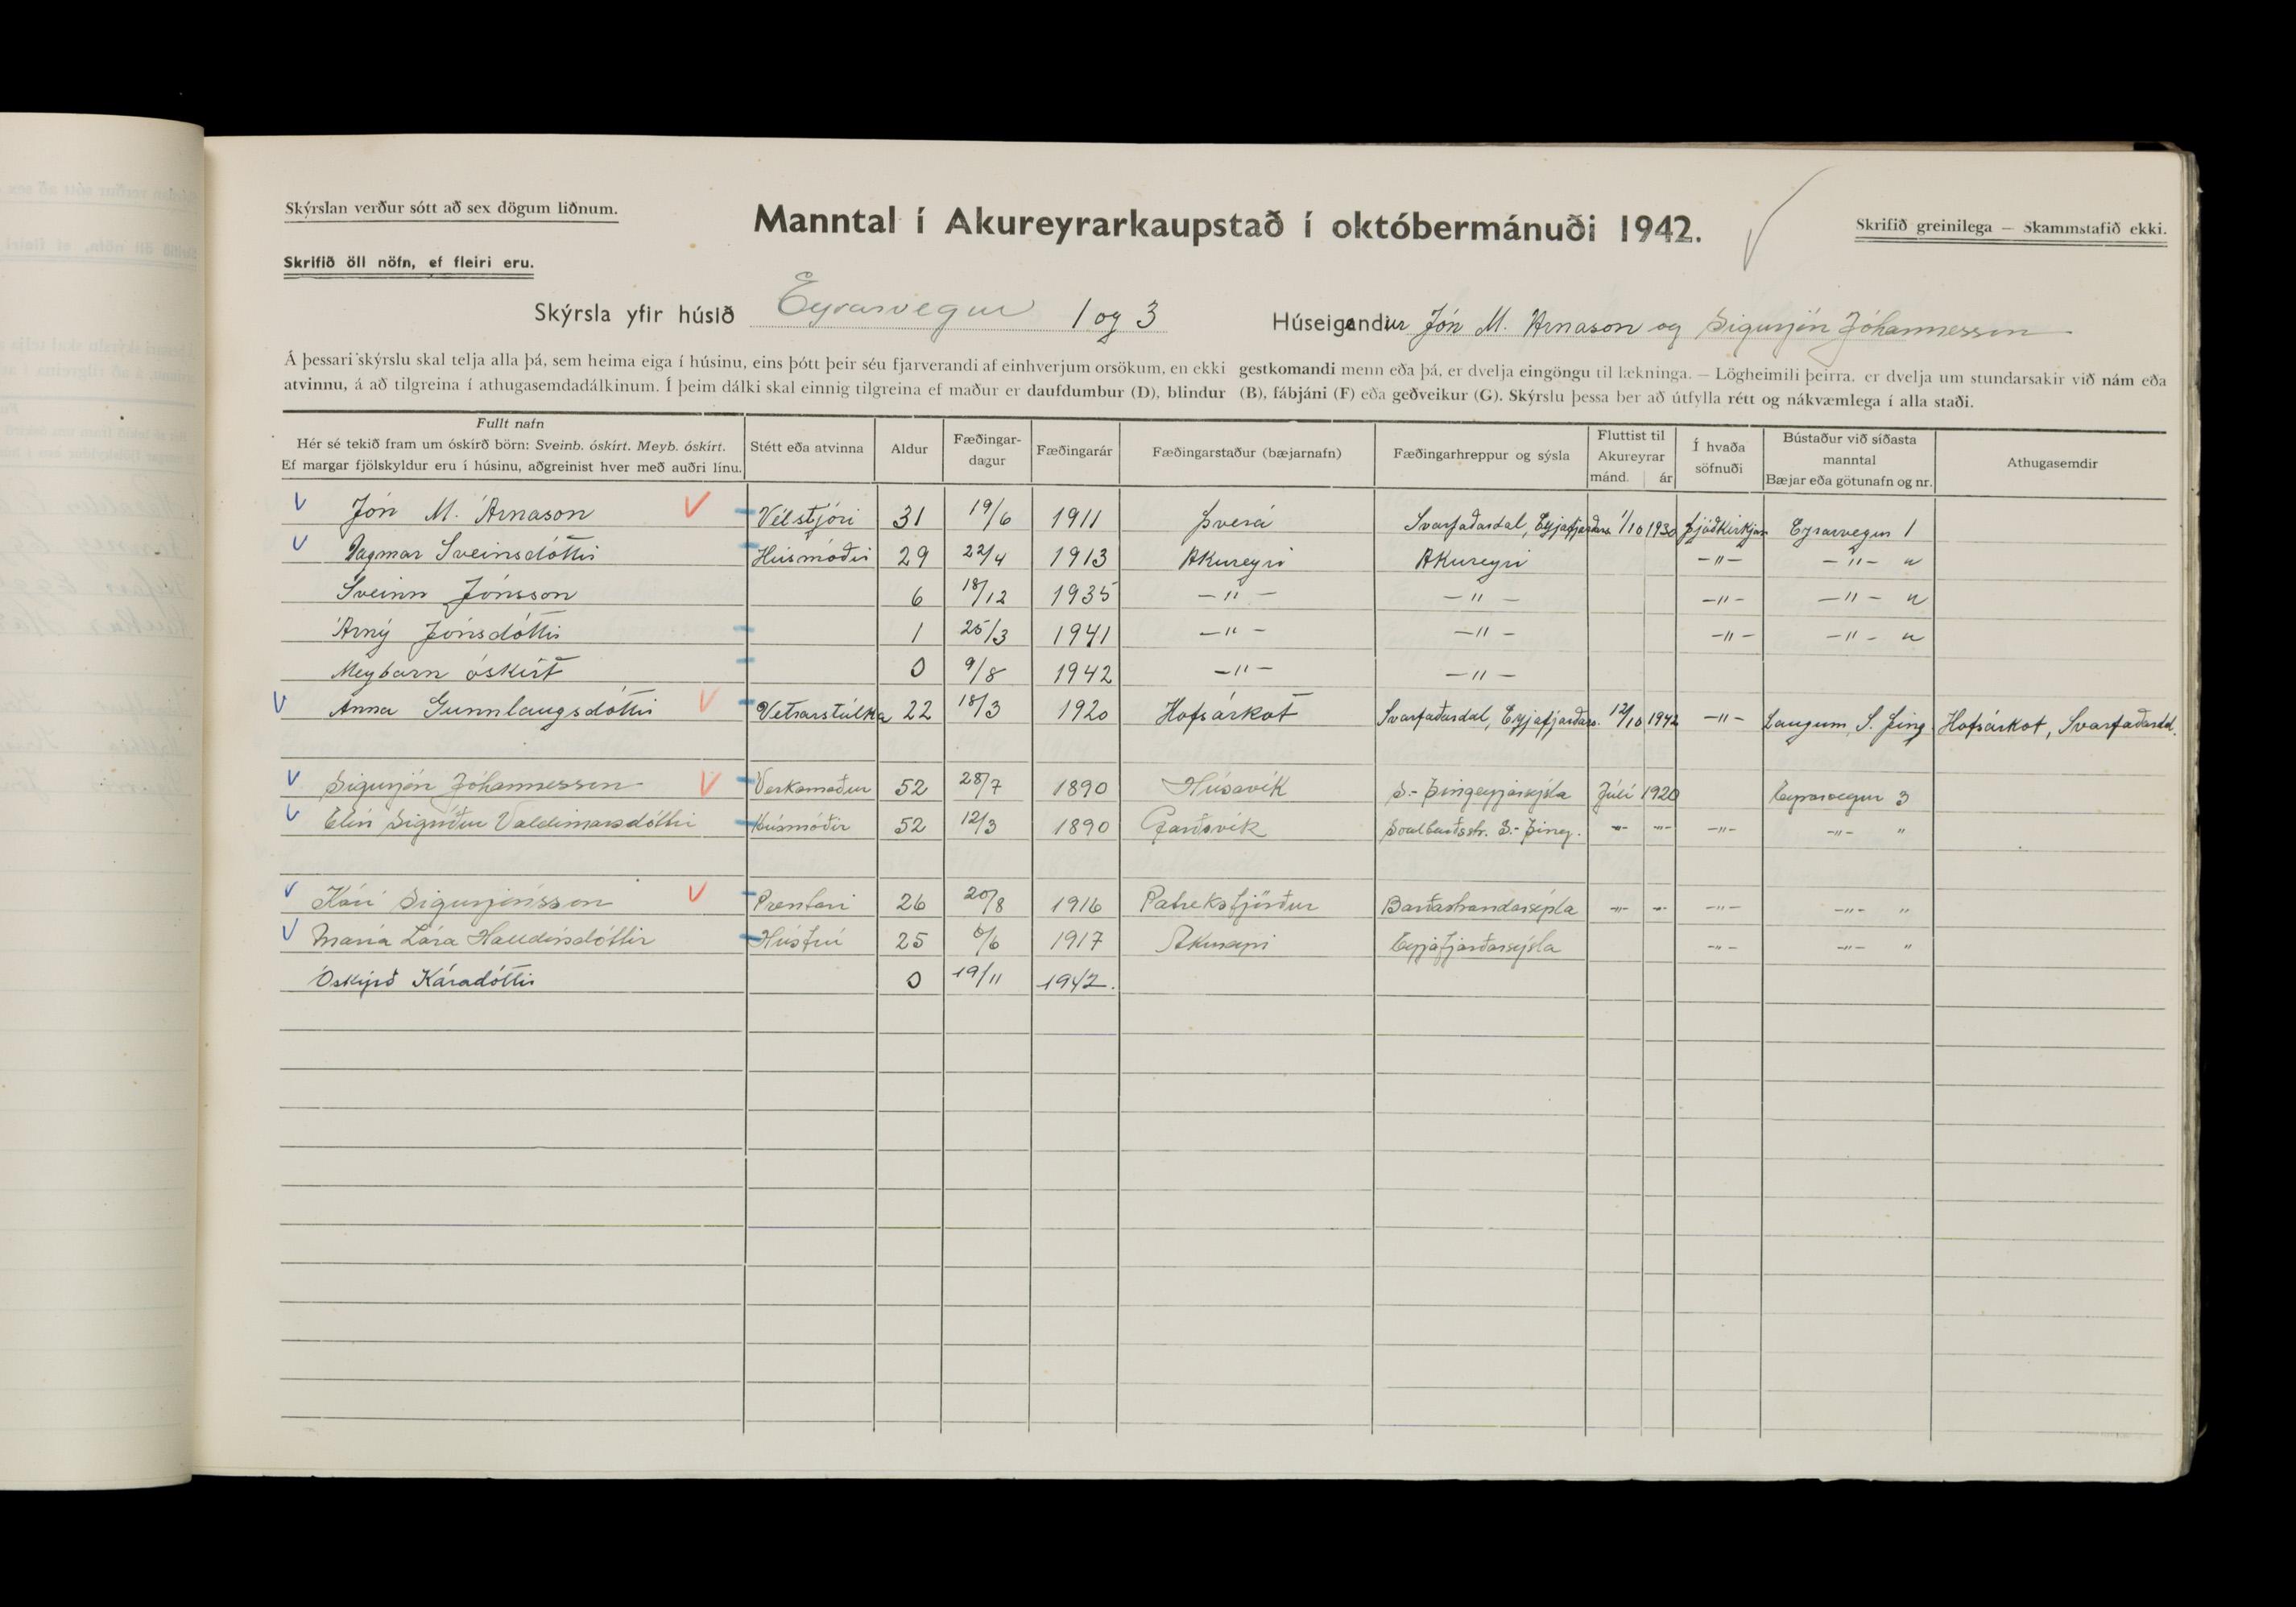 Skýrslan verður sótt að sex dögum liðnum.
Manntal í Akureyrarkaupstað í októbermánuði 1942.
Skrifið greinilega — Skammstafið ekki.
Skrifið öll nöfn, ef fleiri eru.
Skýrsla yfir húsið Eyrarvegur 1 og 3 Húseigendur Jón M. Árnason og Sigurjón Jóhannesson
Á þessari skýrslu skal telja alla þá, sem heima eiga í húsinu, eins þótt þeir séu fjarverandi af einhverjum orsökum, en ekki gestkomandi menn eða þá, er dvelja eingöngu til lækninga. — Lögheimili þeirra, er dvelja um stundarsakir við nám eða
atvinnu, á að tilgreina í athugasemdadálkinum. Í þeim dálki skal einnig tilgreina ef maður er daufdumbur (D), blindur (B), fábjáni (F) eða geðveikur (G). Skýrslu þessa ber að útfylla rétt og nákvæmlega í alla staði.
Fullt nafn
Hér sé tekið fram um óskírð börn: Sveinb. óskírt. Meyb. óskírt.
Ef margar fjölskyldur eru í húsinu, aðgreinist hver með auðri línu.
Stétt eða atvinna
Aldur
Fæðingar-
dagur
Fæðingarár
Fæðingarstaður (bæjarnafn)
Fæðingarhreppur og sýsla
Fluttist til
Akureyrar
mánd. ár
Í hvaða
söfnuði
Bústaður við síðasta
manntal
Bæjar eða götunafn og nr.
Athugasemdir
Jón M. Árnason Vélstjóri 31 19/6 1911 Þverá Svarfaðardal, Eyjafjarðars. 1/10 1930 Þjóðkirkjan Eyrarvegur 1
Dagmar Sveinsdóttir Húsmóðir 29 22/4 1913 Akureyri Akureyri —〃— —〃— 〃
Sveinn Jónsson 6 18/12 1935 —〃— —〃— —〃— —〃— 〃
Árný Jónsdóttir 1 25/3 1941 —〃— —〃— —〃— —〃— 〃
Meybarn óskírt 0 9/8 1942 —〃— —〃—
Anna Gunnlaugsdóttir Vetrarstúlka 22 18/3 1920 Hofsárkot Svarfaðardal, Eyjafjarðars. 12/10 1942 —〃— Laugum, S. Þing. Hofsárkot, Svarfaðardal.
Sigurjón Jóhannesson Verkamaður 52 28/7 1890 Húsavík S.- Þingeyjarsýsla Júlí 1920 Eyrarvegur 3
Elín Sigríður Valdimarsdóttir Húsmóðir 52 12/3 1890 Garðsvík Svalbarðsstr. S.- Þing. —〃— —〃— —〃— —〃— 〃
Kári Sigurjónsson Prentari 26 20/8 1916 Patreksfjörður Barðastrandasýsla —〃— —〃— —〃— —〃— 〃
María Lára Halldórsdóttir Húsfrú 25 6/6 1917 Akureyri Eyjafjarðarsýsla —〃— —〃— 〃
Óskýrð Káradóttir 0 19/11 1942.